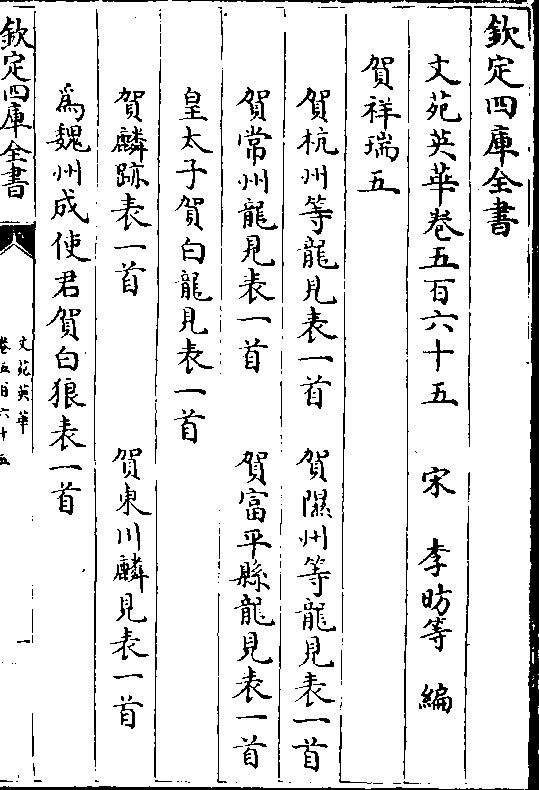 欽定四庫全書
文苑英華卷五百六十五　宋　李昉等　編
賀祥瑞五
賀杭州等龍見表一首　賀隰州等龍見表一首
賀常州龍見表一首　賀富平縣龍見表一首
皇太子賀白龍見表一首
賀麟跡表一首　賀東川麟見表一首
為魏州成使君賀白狼表一首
欽定四庫全書
文苑英華
卷五百六十五
一